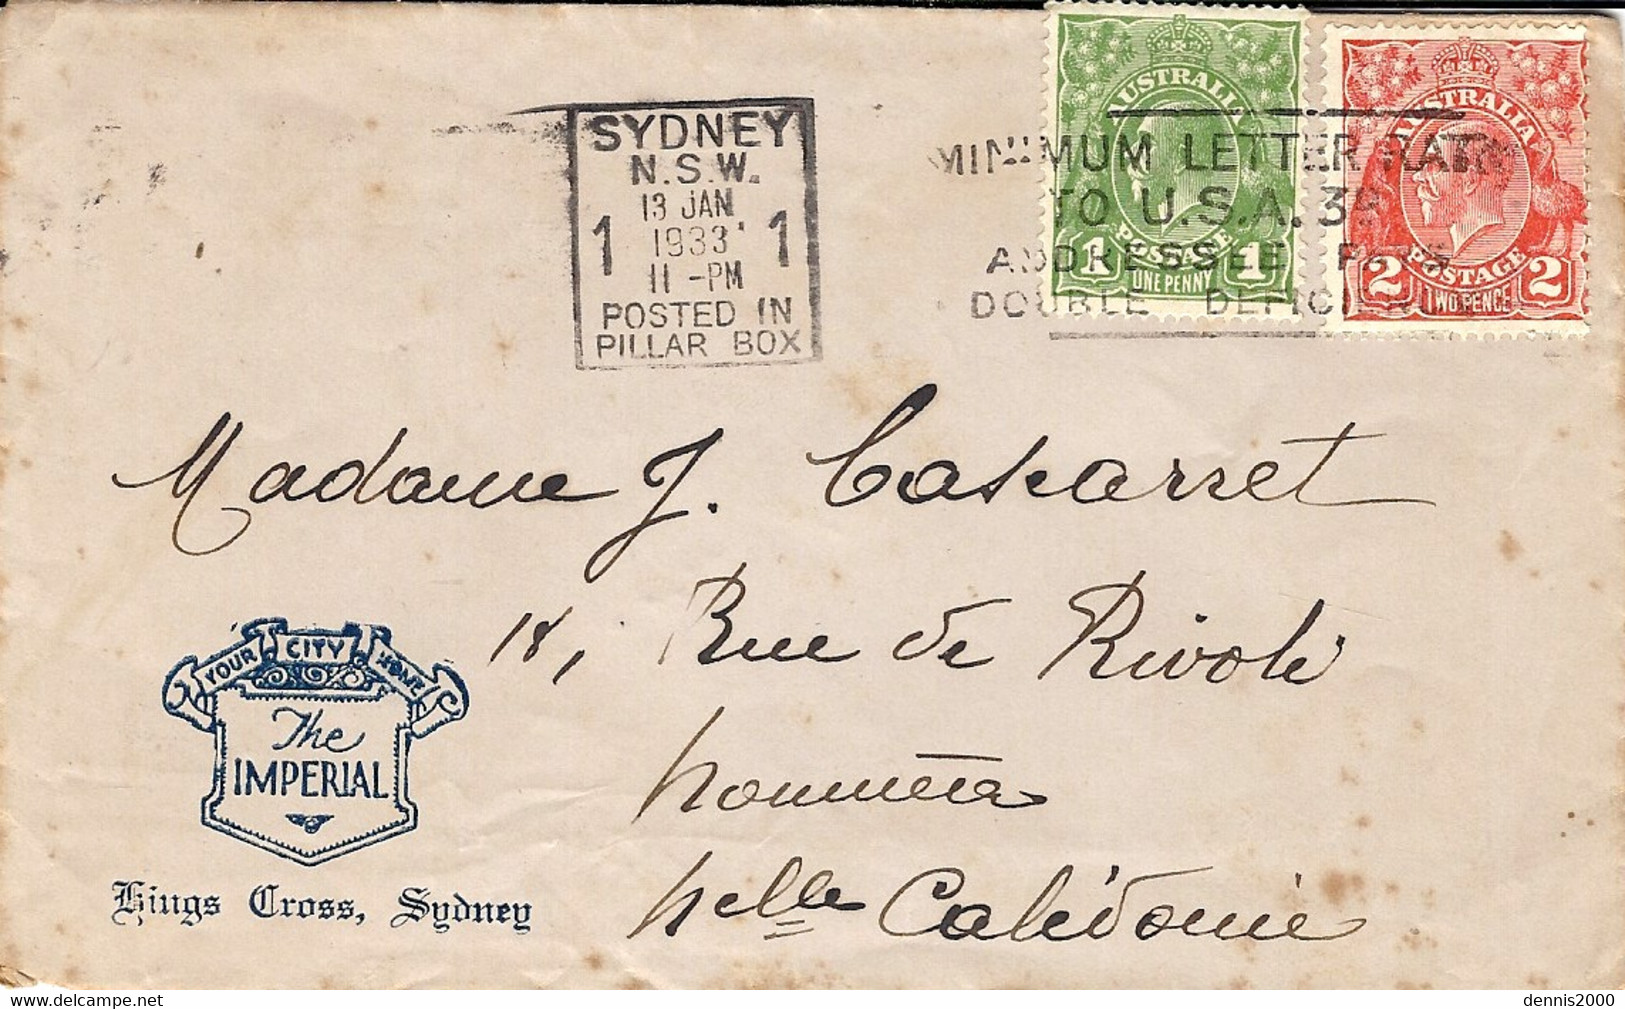 SYDNEY
N.S.W.
13 JAN
1 1933 1
11-PM
POSTED IN
PILLAR BOX
MINIMUM LETTER RATE
TO U.S.A. 3
ADDRESSEE PAYS
DOUBLE
AUSTRALIA
POSTAGE
1 ONE PENNY 1
AUSTRALIA
POSTAGE
2 TWO PENCE 2
Madame J.
18, Rue de Rivoli
Nouméa
Nelle Calédonie
YOUR CITY HOME
The
IMPERIAL
Kings Cross, Sydney
delcampe.net
dennis2000